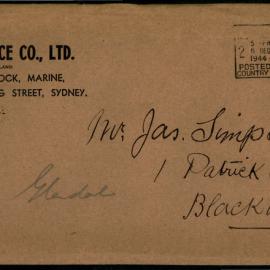 CE CO., LTD.
LAND
OCK, MARINE,
G STREET, SYDNEY.
2
5 - P
6 DEC
1944
POSTED
COUNTRY
Mr. Jas. Simp
1 Patrick
Black